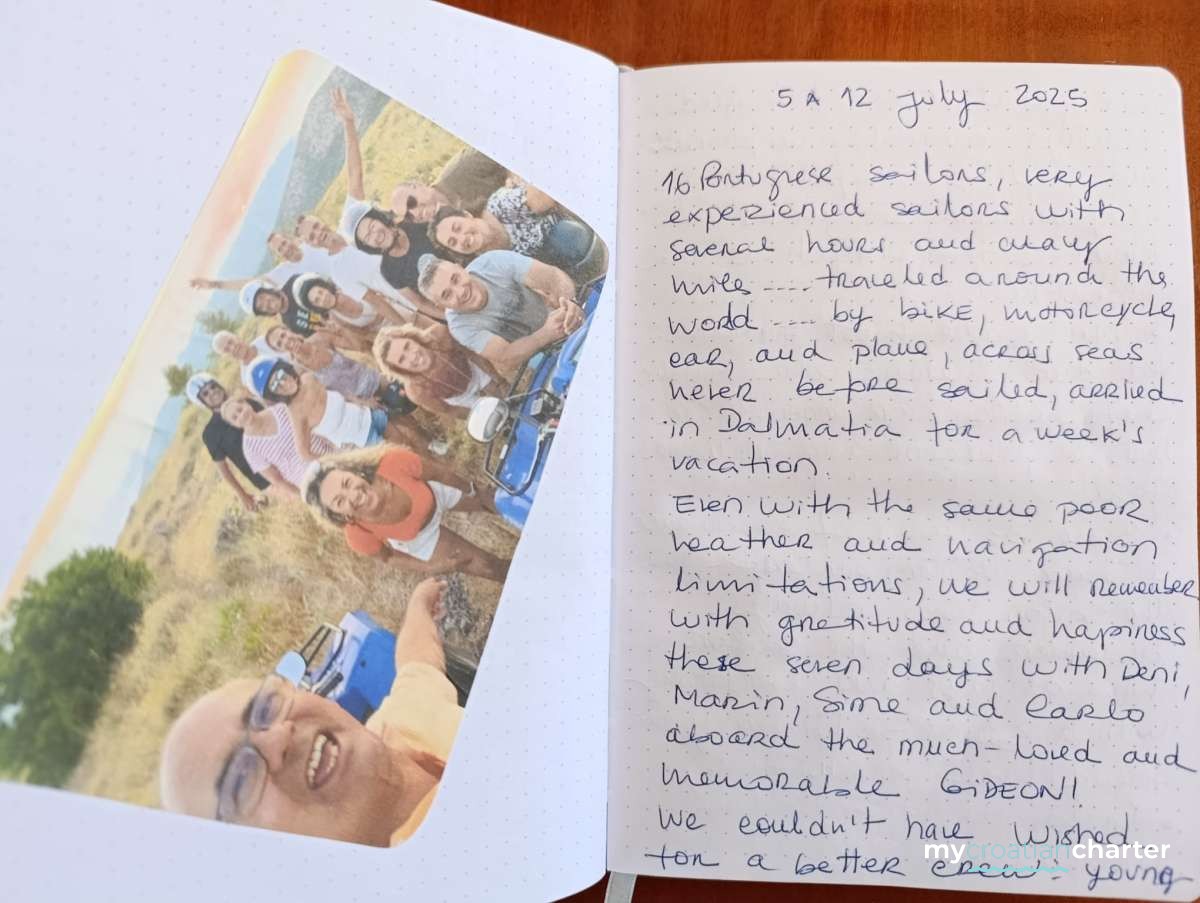 5 A 12 july 2025
16 Portugnese sailors, very
experienced sailors with
several hours and many
miles .... traveled around the
world .... by bike, motorcycle,
car, and plane, across seas
never before sailed, arrived
in Dalmatia for a week's
vacation.
Even with the same poor
weather and navigation
limitations, we will remember
with gratitude and happiness
these seven days with Deni,
Marin, Sime and Carlo
aboard the much-loved and
memorable GIDEON!
We couldn't have wished
for a better crew - young
mycroatiancharter